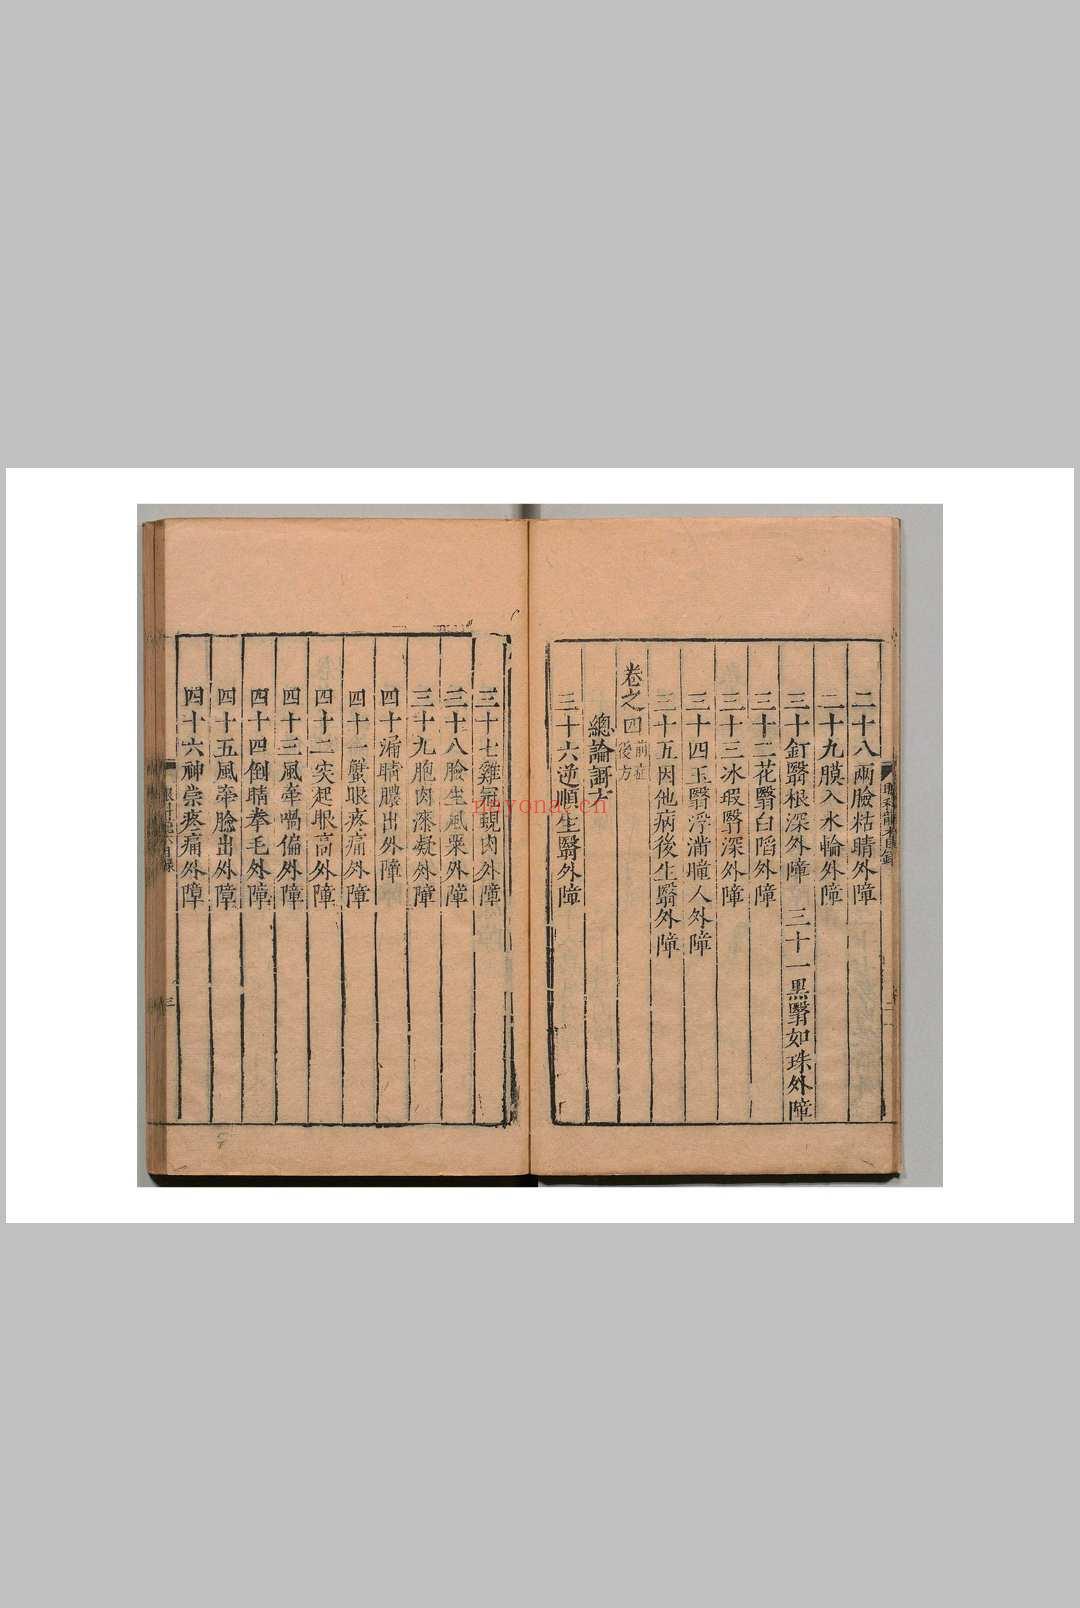 二十八兩臉粘睛外障
二十九膜入水輪外障
三十釘翳根深外障 三十一黑翳如珠外障
三十二花翳白陷外障
三十三冰瑕翳深外障
三十四玉翳浮滿瞳人外障
三十五因他病後生翳外障
卷之四前症後方
總論謌方
三十六逆順生翳外障
三十七雞冠蜆肉外障
三十八臉生風粟外障
三十九胞肉膠凝外障
四十漏睛膿出外障
四十一蟹眼疼痛外障
四十二突起眼高外障
四十三風牽喎偏外障
四十四倒睫拳毛外障
四十五風牽臉出外障
四十六神祟疼痛外障
三
noyona.cn